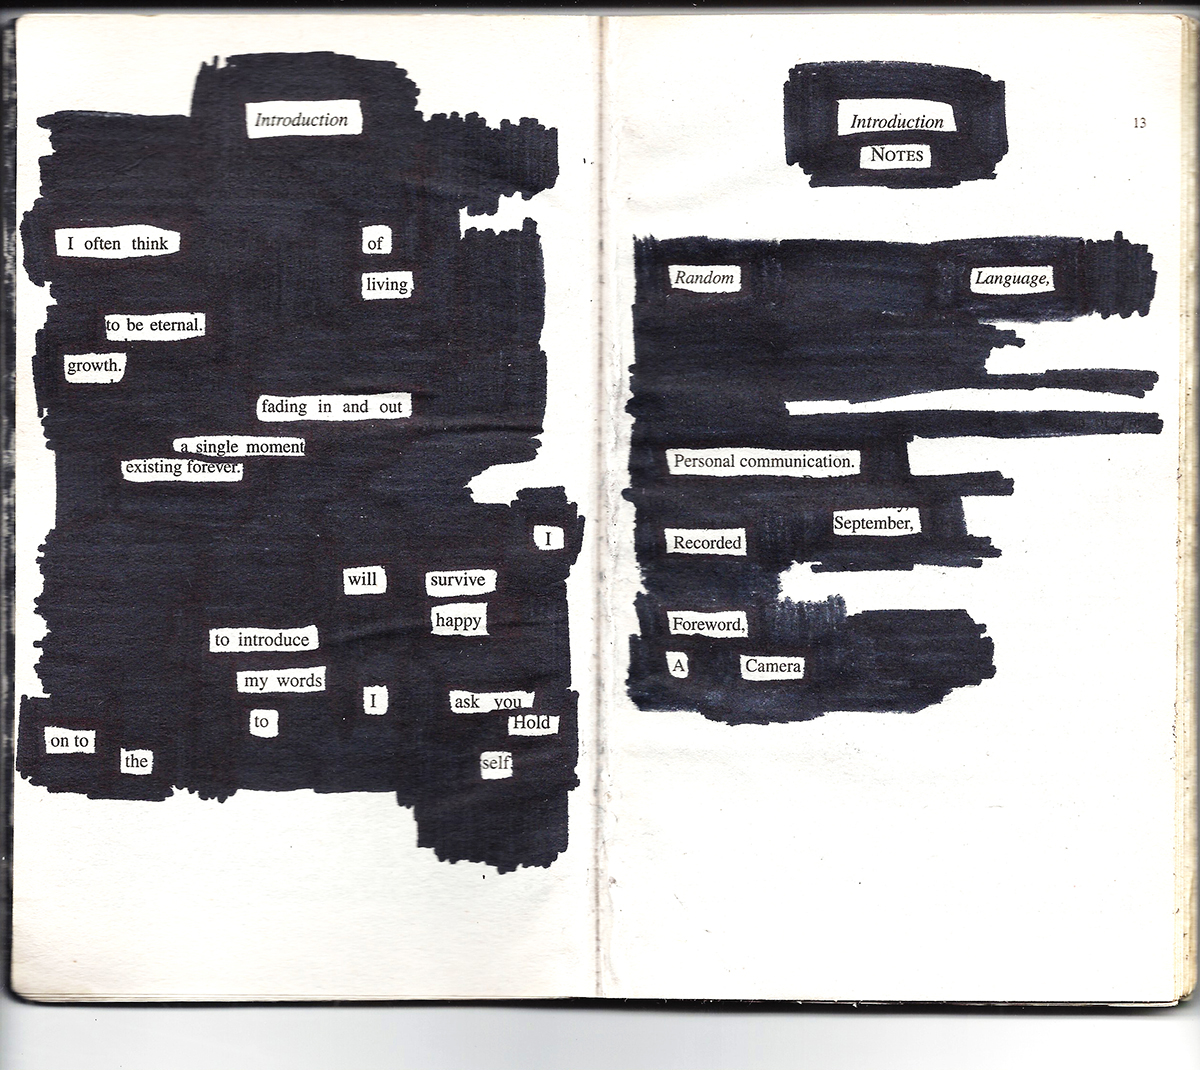 Introduction
I often think of
living
to be eternal.
growth.
fading in and out
a single moment
existing forever.
I
will survive
happy
to introduce
my words
I ask you
to Hold
on to
the self.
Introduction 13
NOTES
Random Language,
Personal communication.
September,
Recorded
Foreword,
A Camera